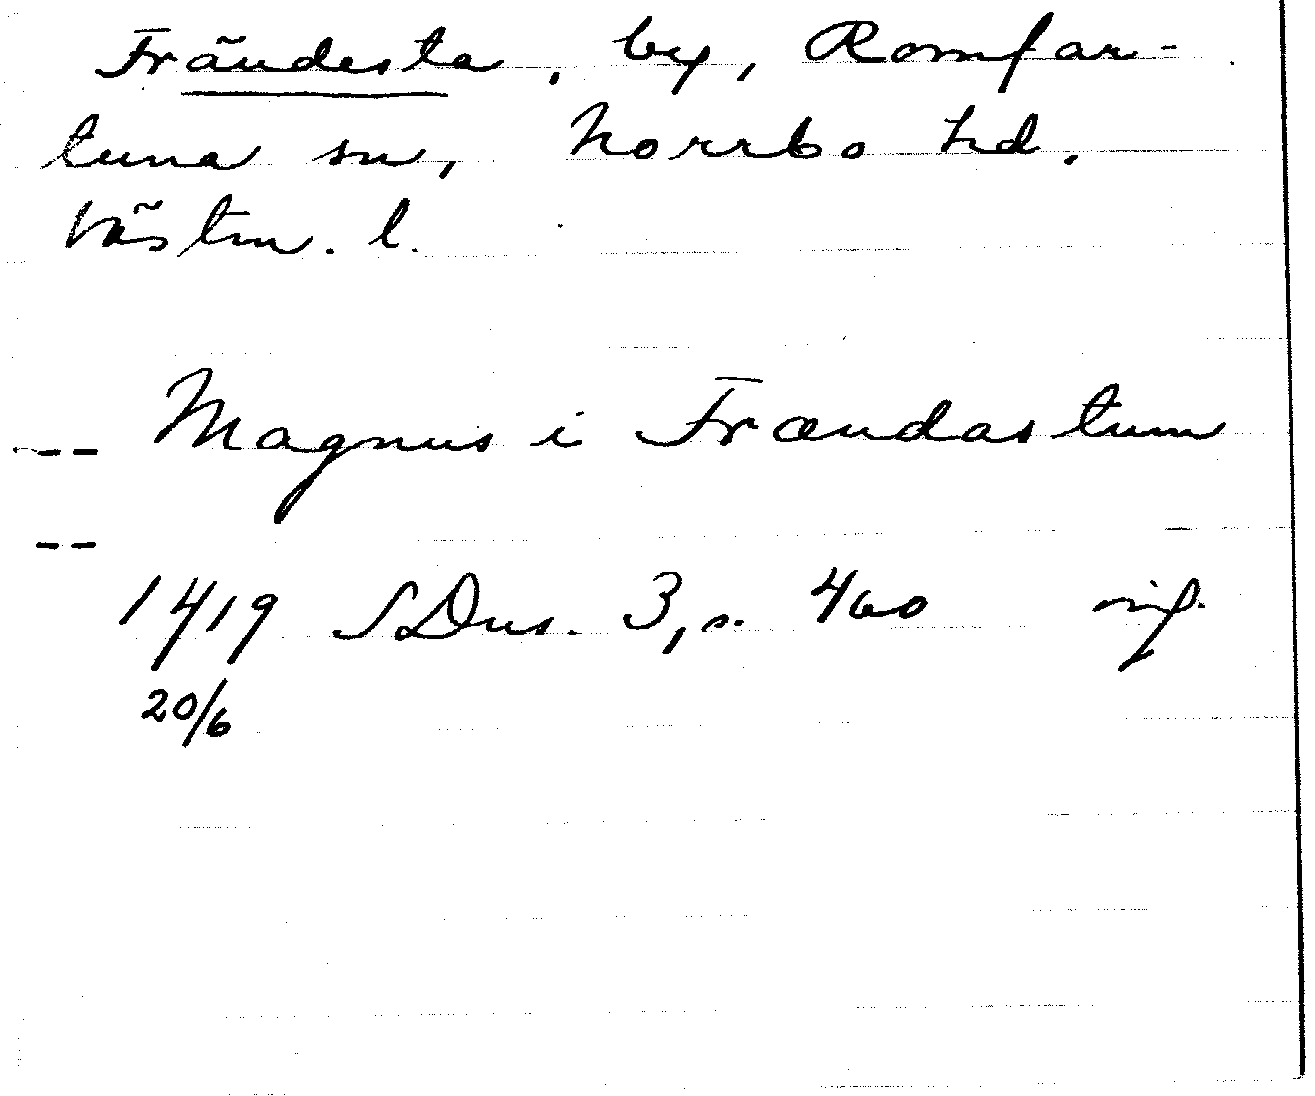 Frändesta, by, Romfar-
tuna sn, Norrbo hd.
Västm. l.
-- Magnus i Frændastum
--
1419 SDns. 3, s. 460
20/6